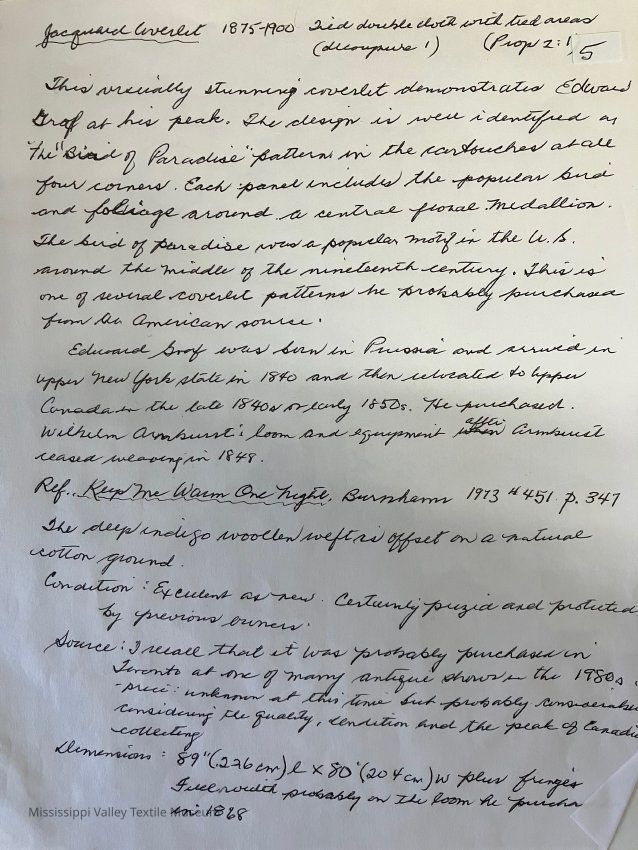 Jacquard Coverlet 1875-1900 Tied doublecloth with tied areas
(decoupure 1) (Prop 2:1)
5
This visually stunning coverlet demonstrates Edward
Graf at his peak. The design is well identified as
the "Bird of Paradise" pattern in the cartouches at all
four corners. Each panel includes the popular bird
and foliage around a central floral medallion.
The bird of paradise was a popular motif in the U.S.
around the middle of the nineteenth century. This is
one of several coverlet patterns he probably purchased
from an American source.
Edward Graf was born in Prussia and arrived in
upper New York state in 1840 and then relocated to Upper
Canada in the late 1840s or early 1850s. He purchased
Wilhelm Armburst's loom and equipment after Armburst
ceased weaving in 1848.
Ref. Keep Me Warm One Night, Burnhams 1973 #451 p. 347
The deep indigo woollen weft is offset on a natural
cotton ground.
Condition: Excellent as new. Certainly prized and protected
by previous owners.
Source: I recall that it was probably purchased in
Toronto at one of many antique shows in the 1980s
- price: unknown at this time but probably considerable
considering the quality, condition and the peak of Canadi
collecting
Dimensions: 89" (226 cm) l x 80" (204 cm) w plus fringes
Full width probably on the loom he purcha
in 1868
Mississippi Valley Textile Museum